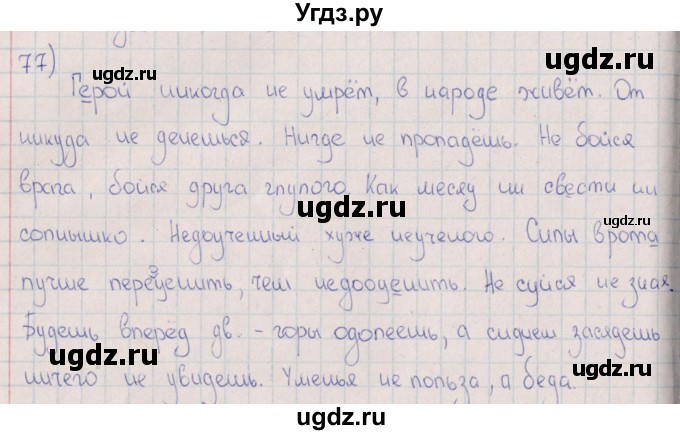 Угдз.ру
77)
Герой никогда не умрёт, в народе живёт. От
никуда не денешься. Нигде не пропадёшь. Не бойся
врага, бойся друга глупого. Как месяц ни свести ни
солнышко. Недоученный хуже неученого. Силы врага
лучше переценить, чем недооценить. Не суйся не зная.
Будешь вперёд дв. - горы одолеешь, а сиднем засядешь
ничего не увидешь. Уменья не польза, а беда.
ugdz.ru ugdz.ru
ugdz.ru
ugdz.ru
ugdz.ru
ugdz.ru
ugdz.ru
ugdz.ru
ugdz.ru